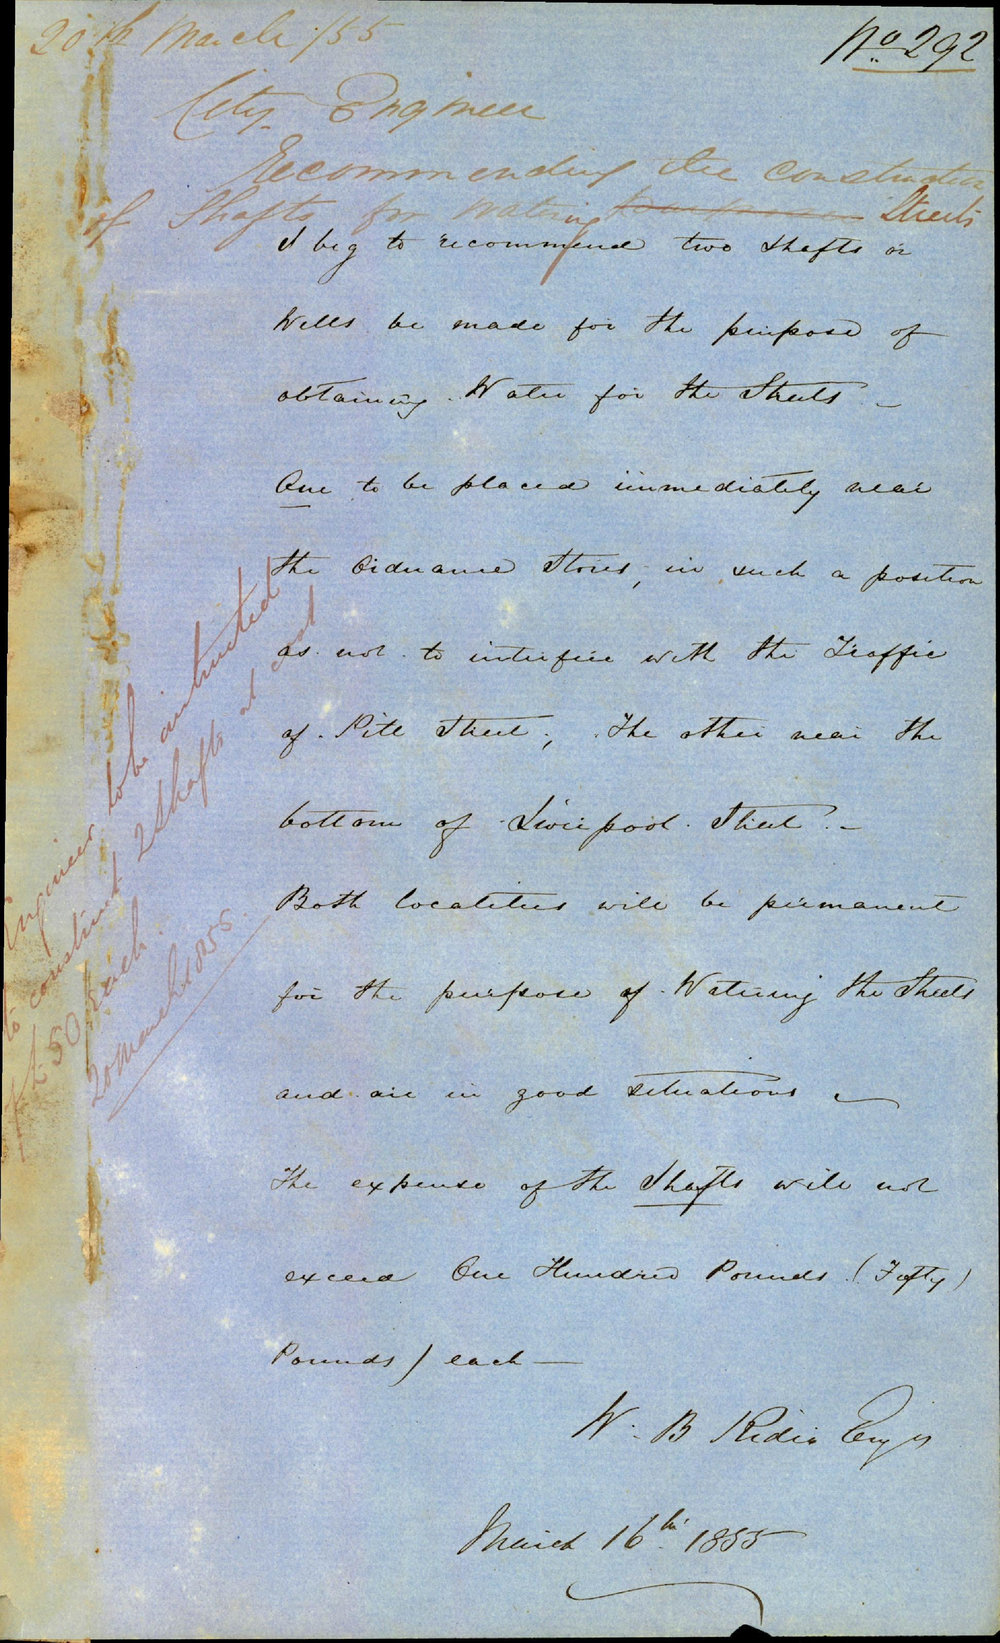 20th March /55
No. 292
City Engineer
Recommending the construction
of Shafts for watering Streets
I beg to recommend two Shafts or
Wells be made for the purpose of
obtaining Water for the Streets –
One to be placed immediately near
the Ordnance Stores, in such a position
as not to interfere with the Traffic
of Pitt Street; The other near the
bottom of Liverpool Street. –
Both localities will be permanent
for the purpose of Watering the Streets
and are in good situations –
The expense of the Shafts will not
exceed One Hundred Pounds (Fifty)
Pounds) each –
W. B Rider Engr
March 16th 1855
Engineer to be instructed
to construct 2 Shafts at cost
of £50 Each
20 March 1855